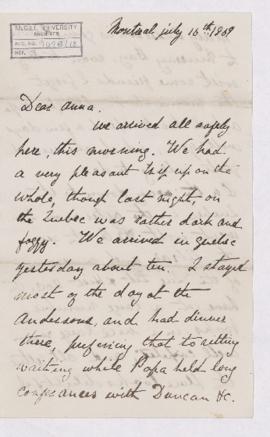 McGILL UNIVERSITY
ARCHIVES
ACC. NO.
REF.
Montreal july 16th 1869
Dear Anna.
We arrived all safely
here, this morning. We had
a very pleasant trip up on the
whole, though last night, on
the Quebec was rather dark and
foggy. We arrived in quebec
yesterday about ten. I stayed
most of the day at the
Andersons, and had dinner
there, prefering that to sitting
waiting while Papa held long
conferances with Duncan &c.